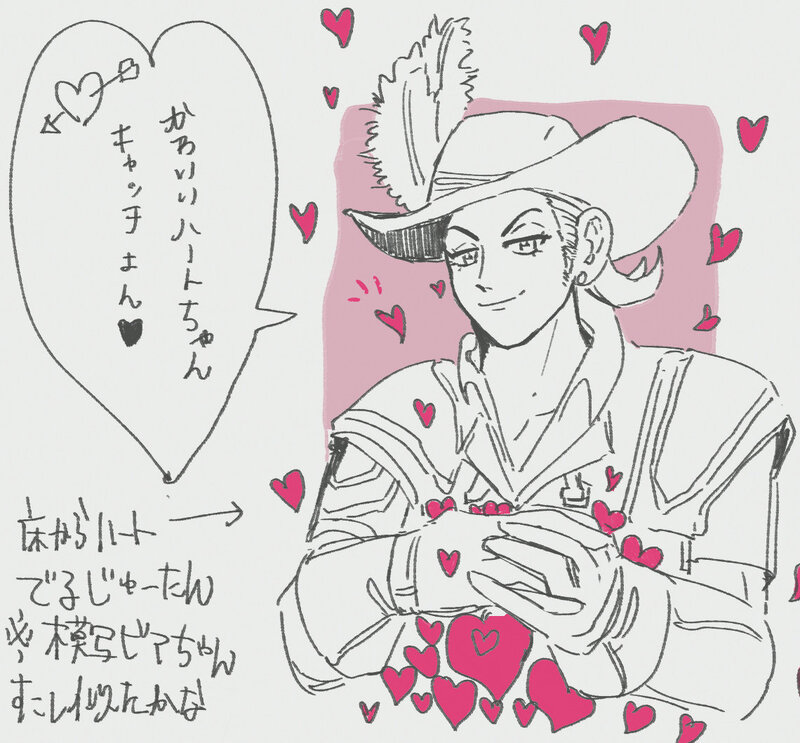 かわいいハートちゃん
キャッチよん♥
床からハート
でるじゅーたん
模写ビアちゃん
すこし似たかな